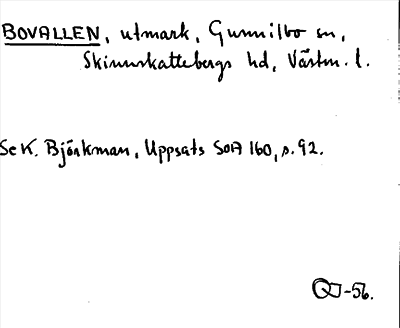 BOVALLEN, utmark, Gunnilbo sn,
Skinnskattebergs hd, Västm. l.
Se K. Björkman, Uppsats SOA 160, s. 92.
-56.